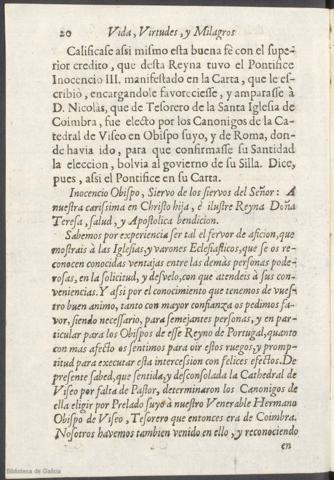 20 Vida, Virtudes, y Milagros
Calificase assi mismo esta buena fè con el supe-
rior credito, que desta Reyna tuvo el Pontifice
Inocencio III. manifestado en la Carta, que le es-
cribiò, encargandole favoreciesse, y amparasse à
D. Nicolàs, que de Tesorero de la Santa Iglesia de
Coimbra, fue electo por los Canonigos de la Ca-
tedral de Viseo en Obispo suyo, y de Roma, don-
de havia ido, para que confirmasse su Santidad
la eleccion, bolvia al govierno de su Silla. Dice,
pues, assi el Pontifice en su Carta.
Inocencio Obispo, Siervo de los siervos del Señor: A
nuestra carissima en Christo hija, è ilustre Reyna Doña
Teresa, salud, y Apostolica bendicion.
Sabemos por experiencia ser tal el fervor de aficion, que
mostrais à las Iglesias, y varones Eclesiasticos, que se os re-
conocen conocidas ventajas entre las demàs personas pode-
rosas, en la solicitud, y desvelo, con que atendeis à sus con-
veniencias. Y assi por el conocimiento que tenemos de vues-
tro buen animo, tanto con mayor confianza os pedimos fa-
vor, siendo necessario, para semejantes personas, y en par-
ticular para los Obispos de esse Reyno de Portugal, quanto
con mas afecto os sentimos para oir estos ruegos, y promp-
titud para executar esta intercession con felices efectos. De
presente sabed, que sentida, y desconsolada la Cathedral de
Viseo por falta de Pastor, determinaron los Canonigos de
ella eligir por Prelado suyo à nuestro Venerable Hermano
Obispo de Viseo, Tesorero que entonces era de Coimbra.
Nosotros havemos tambien venido en ello, y reconociendo
en
Biblioteca de Galicia